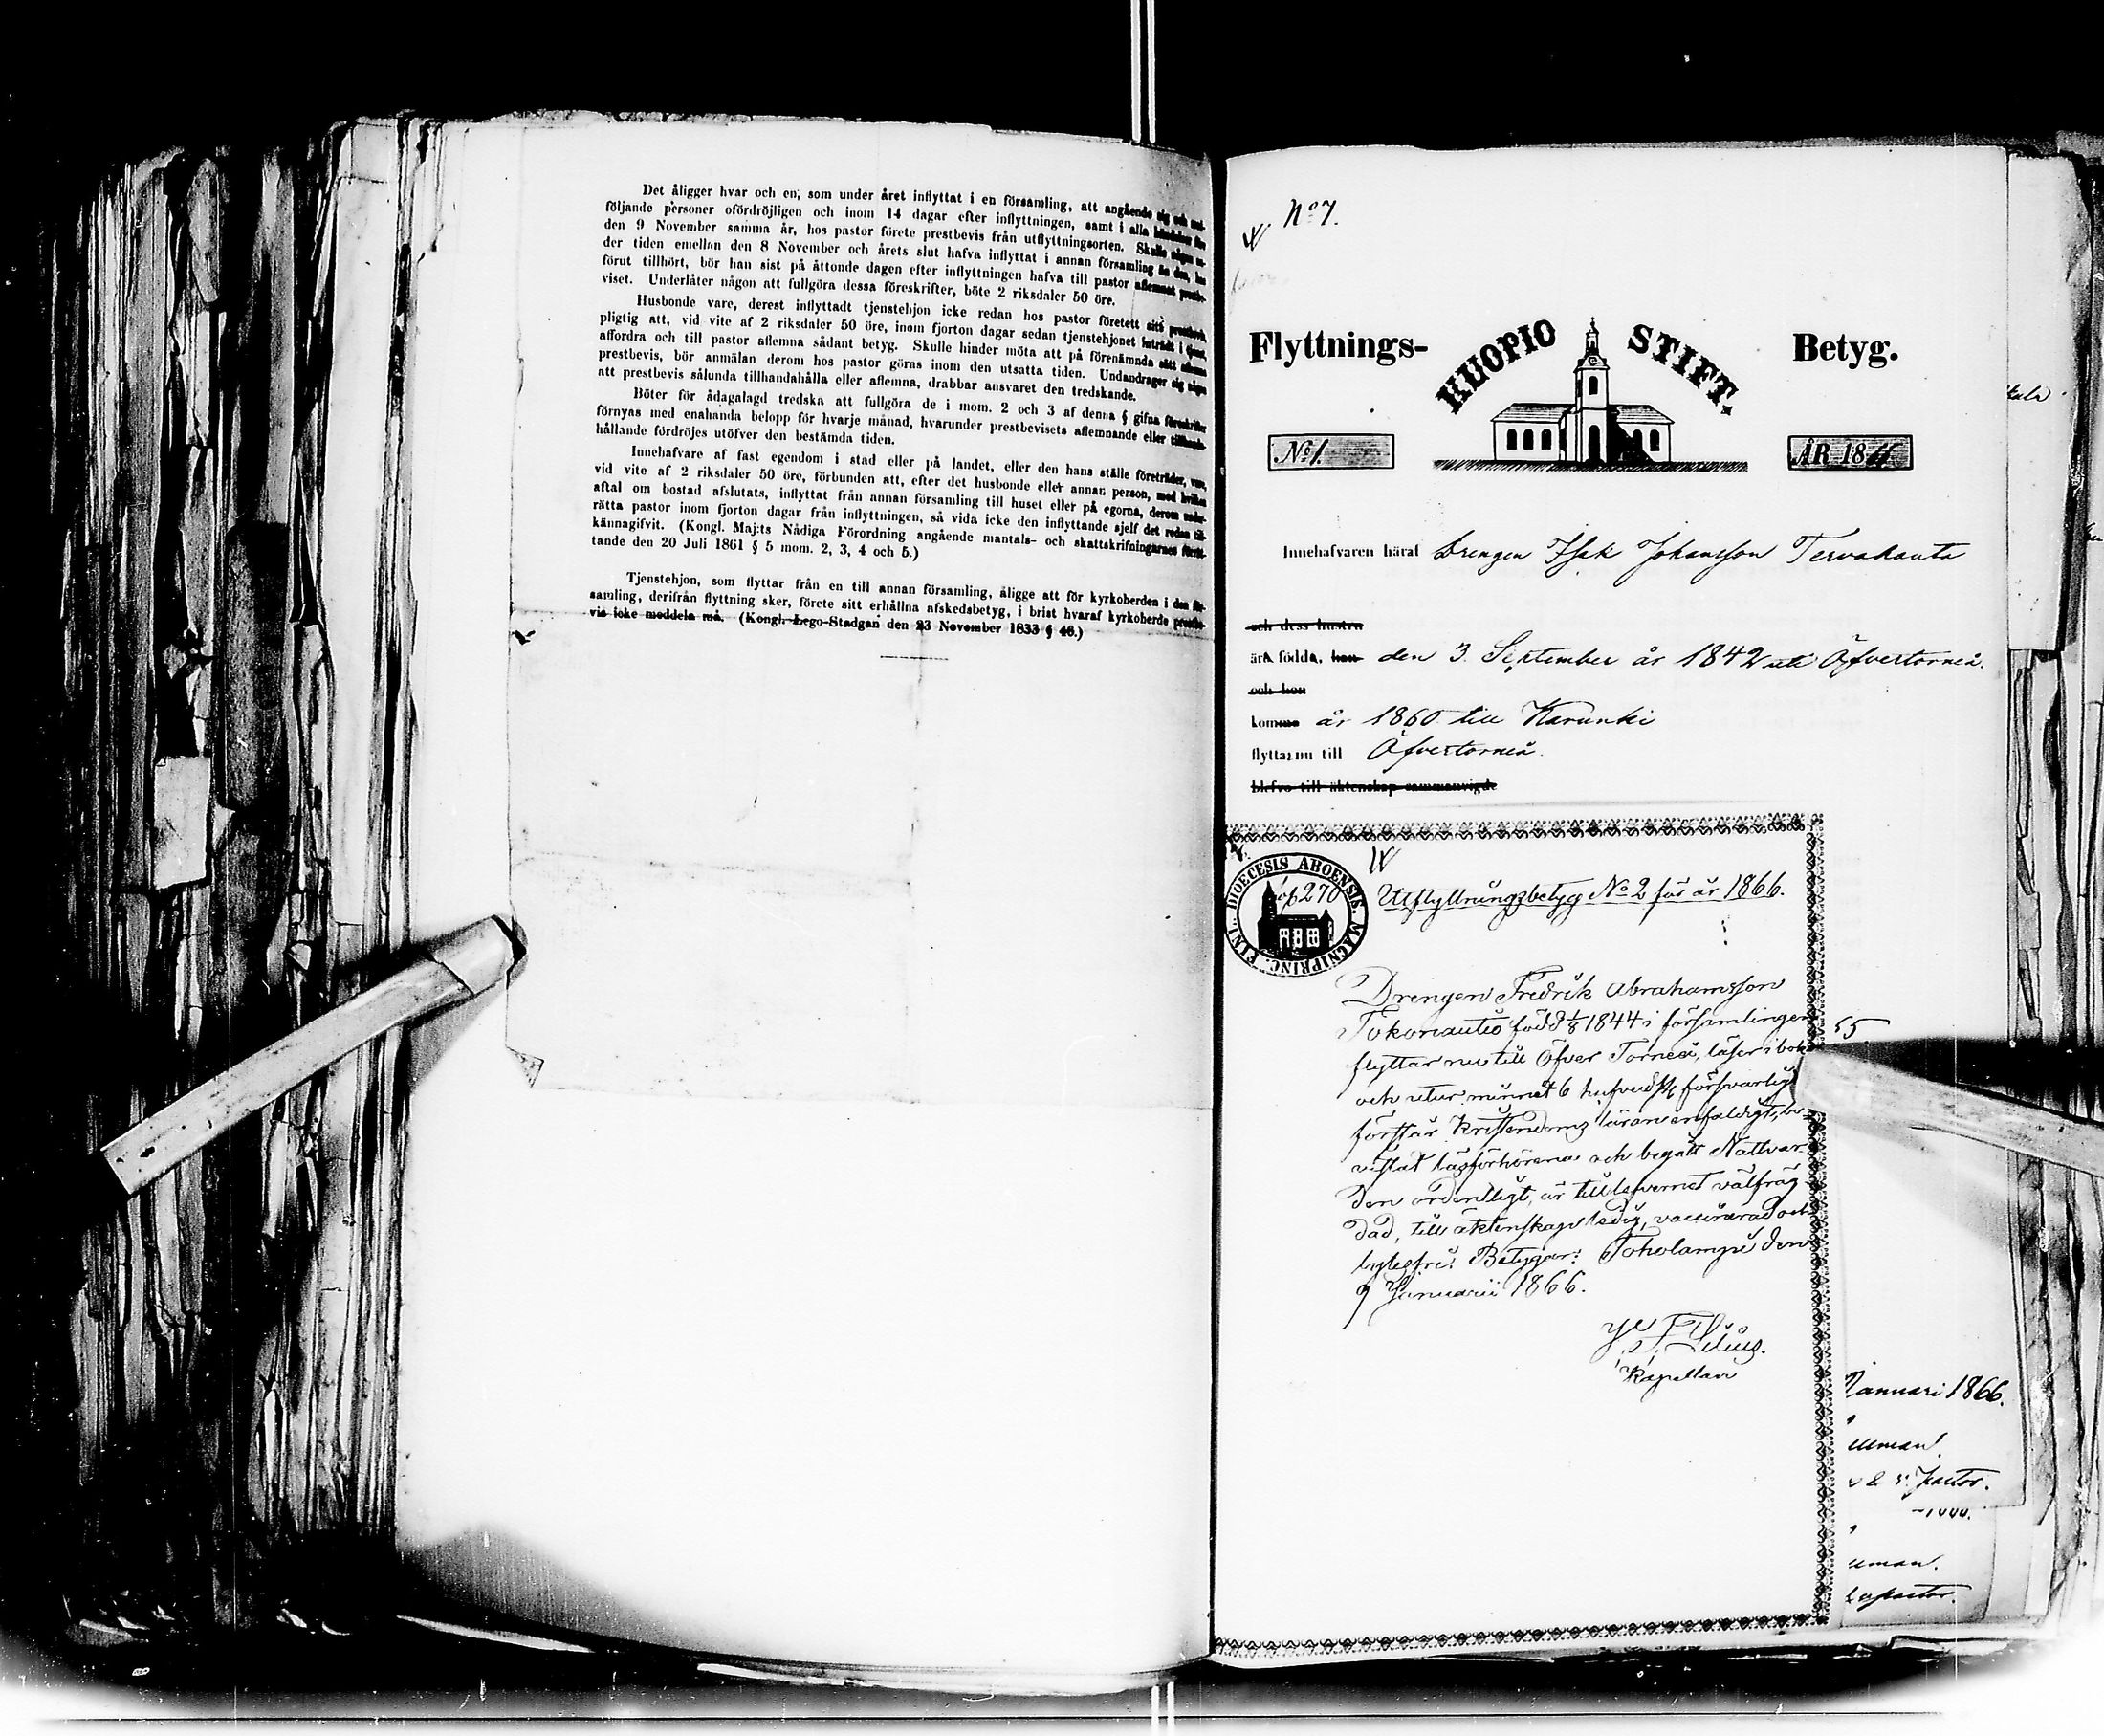 Det åligger hvar och en, som under året inflyttat i en församling, att angående sig och med-
följande personer ofördröjligen och inom 14 dagar efter inflyttningen, samt i alla händelser före
den 9 November samma år, hos pastor förete prestbevis från utflyttningsorten. Skulle någon un-
der tiden emellan den 8 November och årets slut hafva inflyttat i annan församling än den, han
förut tillhört, bör han sist på åttonde dagen efter inflyttningen hafva till pastor aflemnat prestbe-
viset. Underlåter någon att fullgöra dessa föreskrifter, böte 2 riksdaler 50 öre.
Husbonde vare, derest inflyttadt tjenstehjon icke redan hos pastor företett sitt prestbevis,
pligtig att, vid vite af 2 riksdaler 50 öre, inom fjorton dagar sedan tjenstehjonet inträdt i tjenst,
affordra och till pastor aflemna sådant betyg. Skulle hinder möta att på förenämnda sätt aflemna
prestbevis, bör anmälan derom hos pastor göras inom den utsatta tiden. Undandrager sig någon
att prestbevis sålunda tillhandahålla eller aflemna, drabbar ansvaret den tredskande.
Böter för ådagalagd tredska att fullgöra de i mom. 2 och 3 af denna § gifna föreskrifter
förnyas med enahanda belopp för hvarje månad, hvarunder prestbevisets aflemnande eller tillhanda-
hållande fördröjes utöfver den bestämda tiden.
Innehafvare af fast egendom i stad eller på landet, eller den hans ställe företräder, vare,
vid vite af 2 riksdaler 50 öre, förbunden att, efter det husbonde eller annan person, med hvilken
aftal om bostad afslutats, inflyttat från annan församling till huset eller på egorna, derom under-
rätta pastor inom fjorton dagar från inflyttningen, så vida icke den inflyttande sjelf det redan till-
kännagifvit. (Kongl. Maj:ts Nådiga Förordning angående mantals- och skattskrifningarnes förrät-
tande den 20 Juli 1861 § 5 mom. 2, 3, 4 och 5.)
Tjenstehjon, som flyttar från en till annan församling, åligge att för kyrkoherden i den för-
samling, derifrån flyttning sker, förete sitt erhållna afskedsbetyg, i brist hvaraf kyrkoherde prestbe-
vis icke meddela må. (Kongl. Lego-Stadgan den 23 November 1833 § 46.)
No 7.
Flyttnings- KUOPIO STIFT. Betyg.
No 1. ÅR 18
Innehafvaren häraf Drengen Isak Johansson Tervakanta
och dess hustru
äro födda, han den 3 September år 1842 uti Öfvertorneå.
och hon
komme år 1860 till Karunki
flyttar nu till Öfvertorneå.
blefvo till äktenskap sammanvigde
DIOECESIS ABOENSIS. MAGNIPRINC. FINL.
270
Utflyttningsbetyg No 2 för år 1866.
Drengen Fredrik Abrahamsson
född 1/8 1844 i församlingen
flyttar nu till Öfver Torneå, läser i bok
och utur minnet 6 hufvudst försvarligt
förstår Kristendoms läran enfaldigt, be-
vistat läsförhören och begått Nattvar-
den ordentligt, är till lefvernet välfräg-
dad, till äktenskap ledig, vaccinerad och
lytesfri. Betygar: Toholampi den
9 Januarii 1866.
Kapellan
55
Januari 1866.
Pastor.